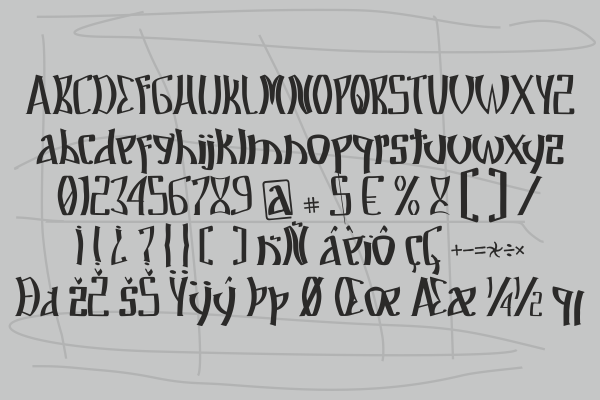 ABCDEFGHIJKLMNOPQRSTUVWXYZ
abcdefghijklmnopqrstuvwxyz
0123456789 @ # $ € % & [ ] /
¡ ! ¿ ? { } ( ) ñÑ âêíô çÇ +-=×÷×
Ðd žŽ šŠ Ÿÿý Þþ Ø Œœ Ææ ¼½ ¶